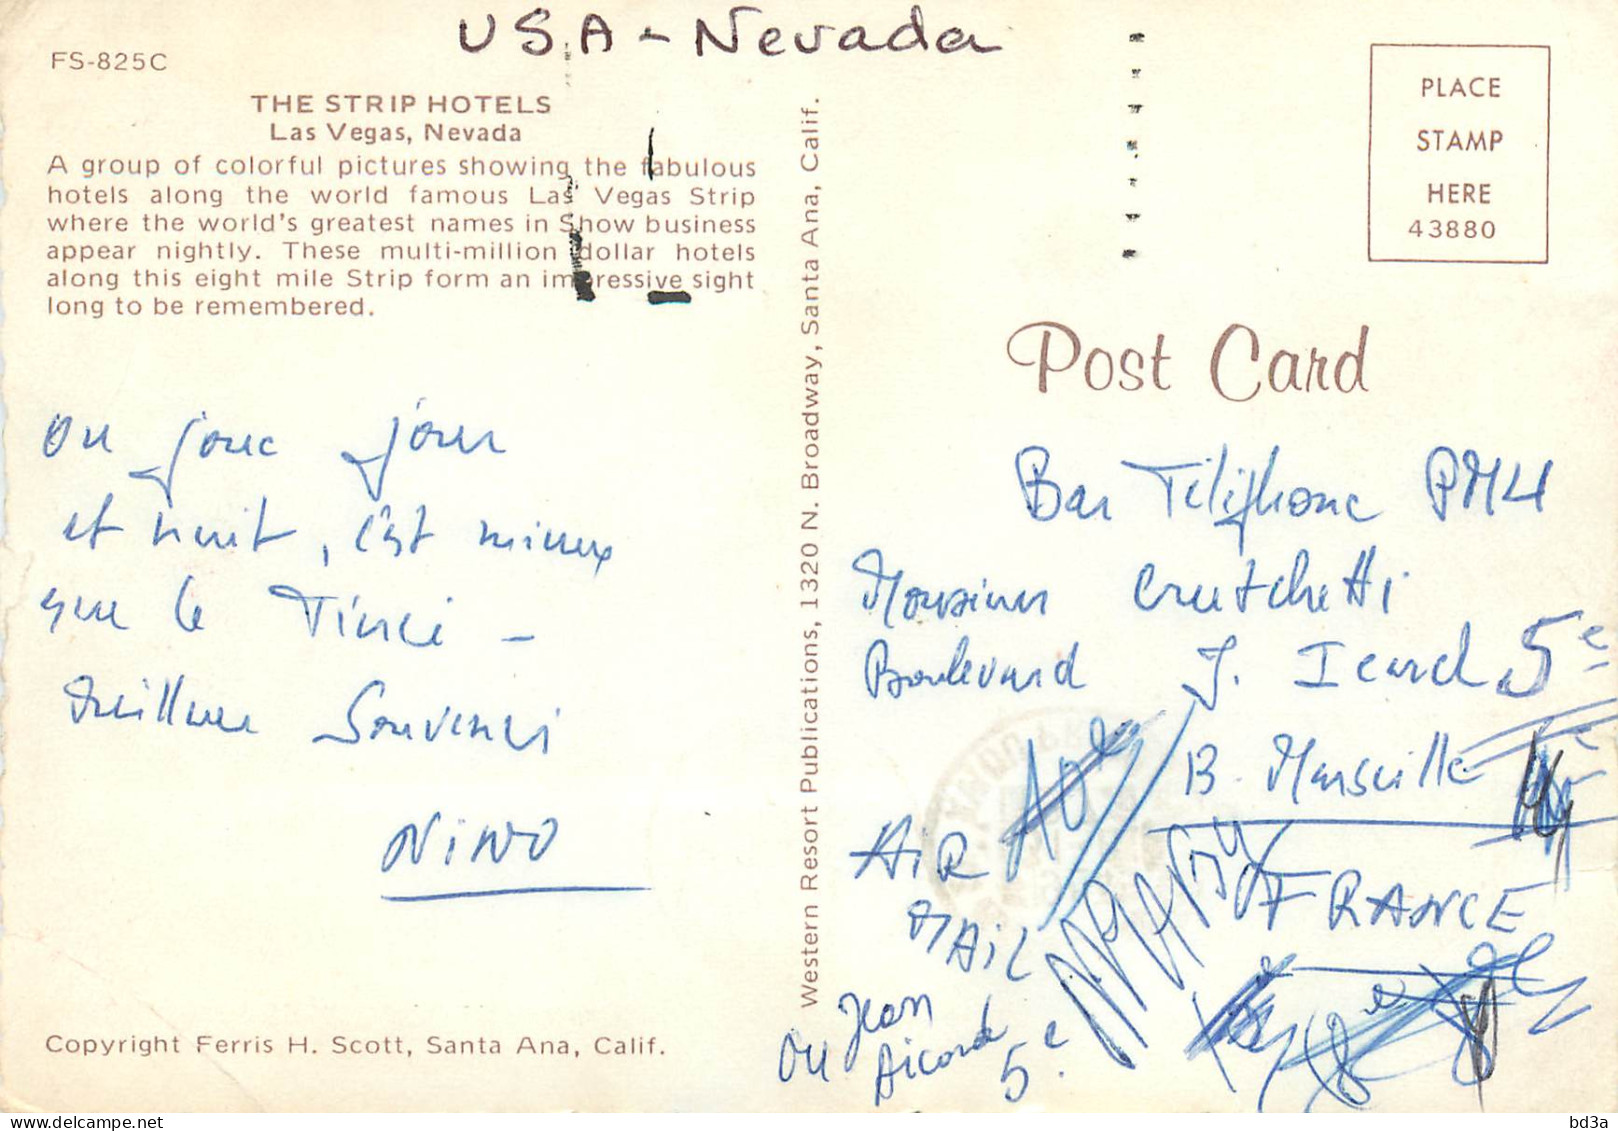 USA - Nevada
FS-825C
THE STRIP HOTELS
Las Vegas, Nevada
A group of colorful pictures showing the fabulous
hotels along the world famous Las Vegas Strip
where the world's greatest names in Show business
appear nightly. These multi-million dollar hotels
along this eight mile Strip form an impressive sight
long to be remembered.
on joue jour
et nuit, c'est mieux
que le Tiercé -
Meilleurs Souvenirs
NiNO
Copyright Ferris H. Scott, Santa Ana, Calif.
Western Resort Publications, 1320 N. Broadway, Santa Ana, Calif.
PLACE
STAMP
HERE
43880
Post Card
Bar Téléphone PMU
Monsieur Crutchetti
Boulevard J. Icard 5e
13 - Marseille
FRANCE
AiR
MAiL
ou Jean
Aicard
5e